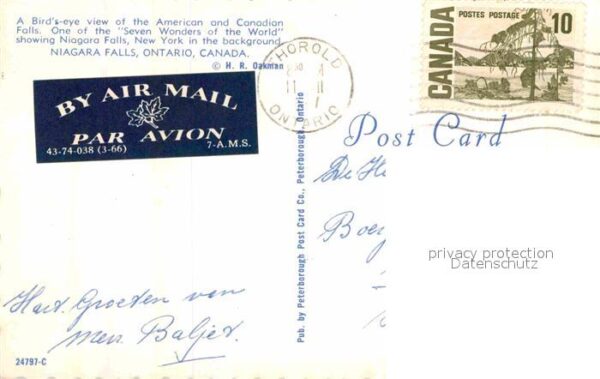 A Bird's-eye view of the American and Canadian
Falls. One of the "Seven Wonders of the World"
showing Niagara Falls, New York in the background.
NIAGARA FALLS, ONTARIO, CANADA.
© H. R. Oakman
BY AIR MAIL
PAR AVION
43-74-038 (3-66) 7-A.M.S.
THOROLD
ONTARIO
POSTES POSTAGE 10
CANADA
Post Card
De He
Boe
privacy protection
Datenschutz
Pub. by Peterborough Post Card Co., Peterborough, Ontario
Hart. Groeten van
men Baljet.
24797-C